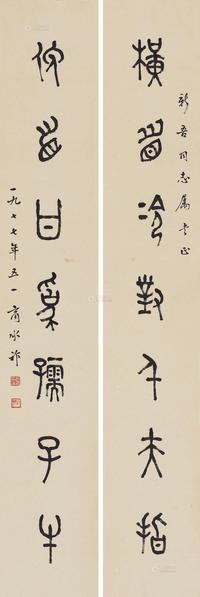 新吾同志属书正
橫眉冷對千夫指
俯首甘爲孺子牛
一九七七年五一商承祚